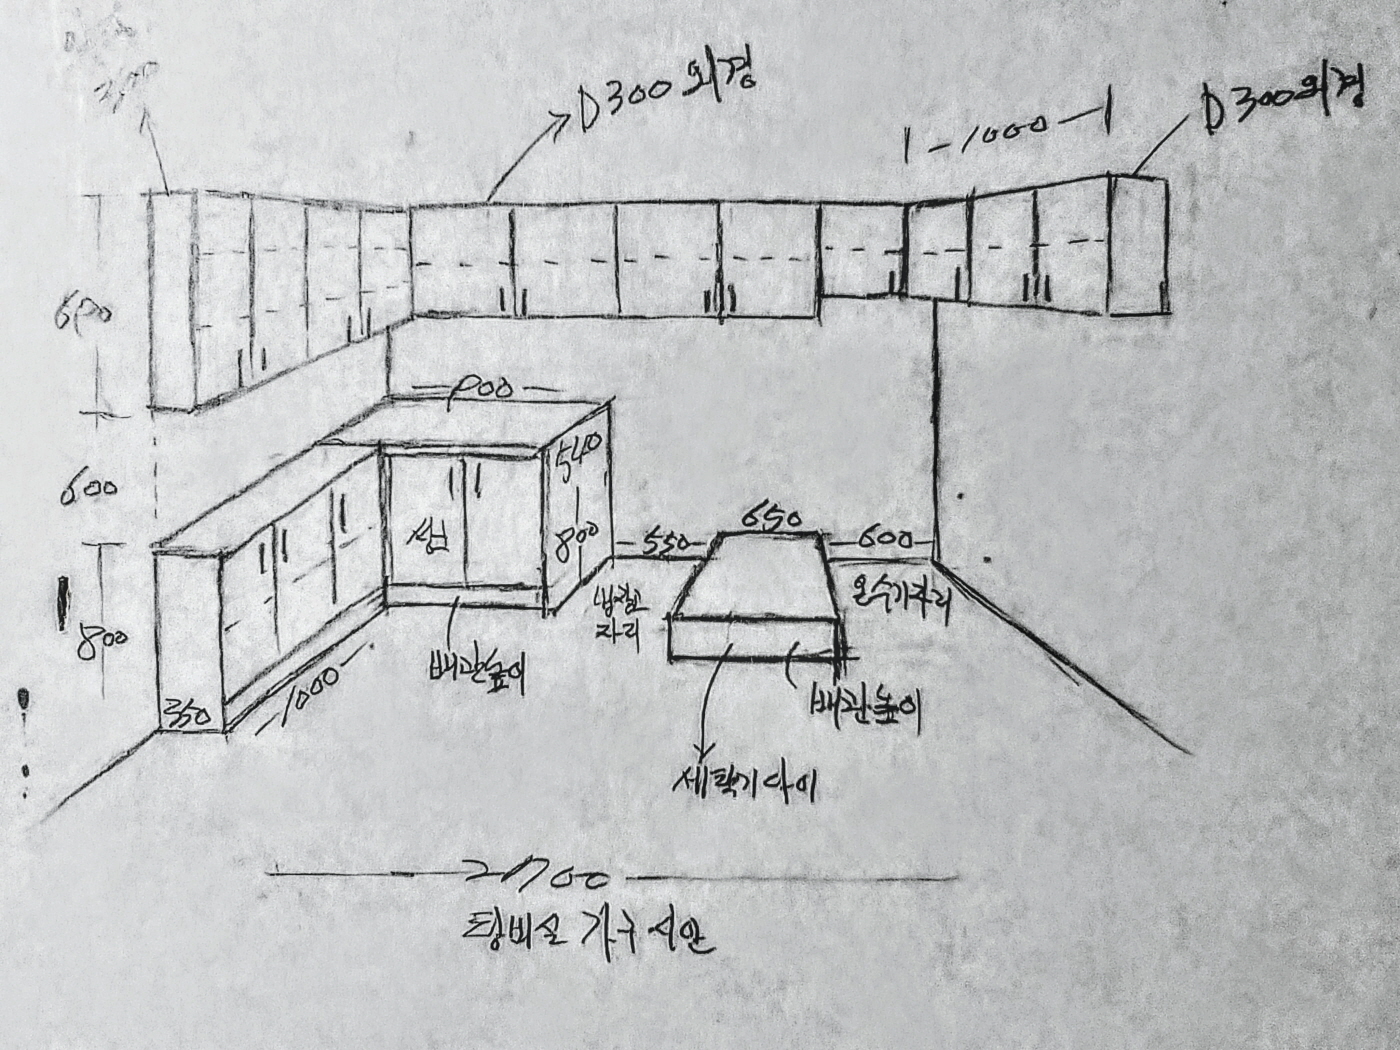 300
D300외경
1000
D300외경
600
900
600
540
싱크
800
650
550
600
냉장고
자리
온수기자리
800
배관높이
350
1000
배관높이
세탁기다이
2700
탕비실 가구 시안